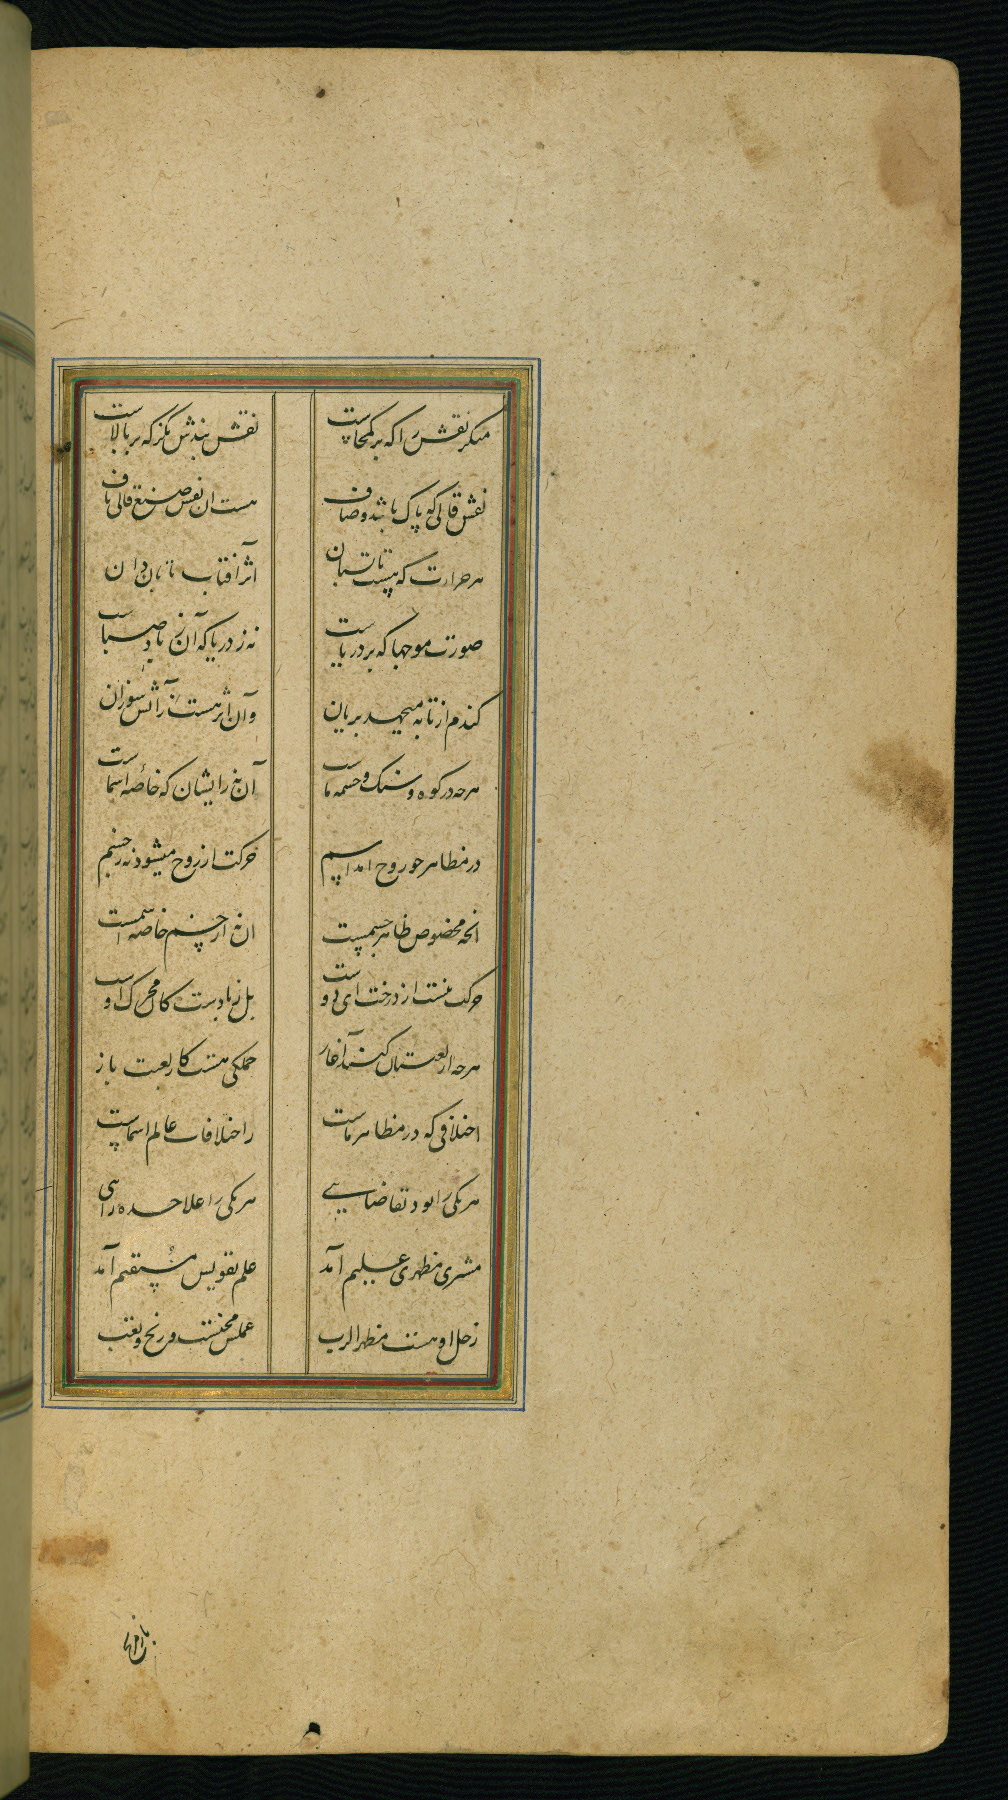 منکر نقش را که بر کمخاست نقش بندش نگر که بر بالاست
نقش قالی که پاک باشد و صاف هست آن نقش صنع قالی باف
هر حرارت که نیست تابستان اثر آفتاب تابان دان
صورت موجها که بر دریاست نه ز دریا که آن ز باد صباست
گندم از تابه میجهد بریان وآن اثر هست ز آتش سوزان
هرچه در کوه و سنگ و چشمه ماست آن نه زایشان که خاصه اسماست
در مظاهر چو روح آمد اسم حرکت از روح میشود نه ز جسم
آنچه مخصوص ظاهر جسمست آن نه از جسم خاصه اسمست
حرکت نیست از درخت ای دوست بل ز بادست کان محرک اوست
هرچه از لعبتان کنند آغاز جملگی هست کار لعبت باز
اختلافی که در مظاهر ماست ز اختلافات عالم اسماست
هر یکی را بود تقاضایی هر یکی را علاحده راهی
مشتری مظهری علیم آمد علم تقویس مستقیم آمد
زحل او هست مظهر الرب عملش محنتست و رنج و تعب